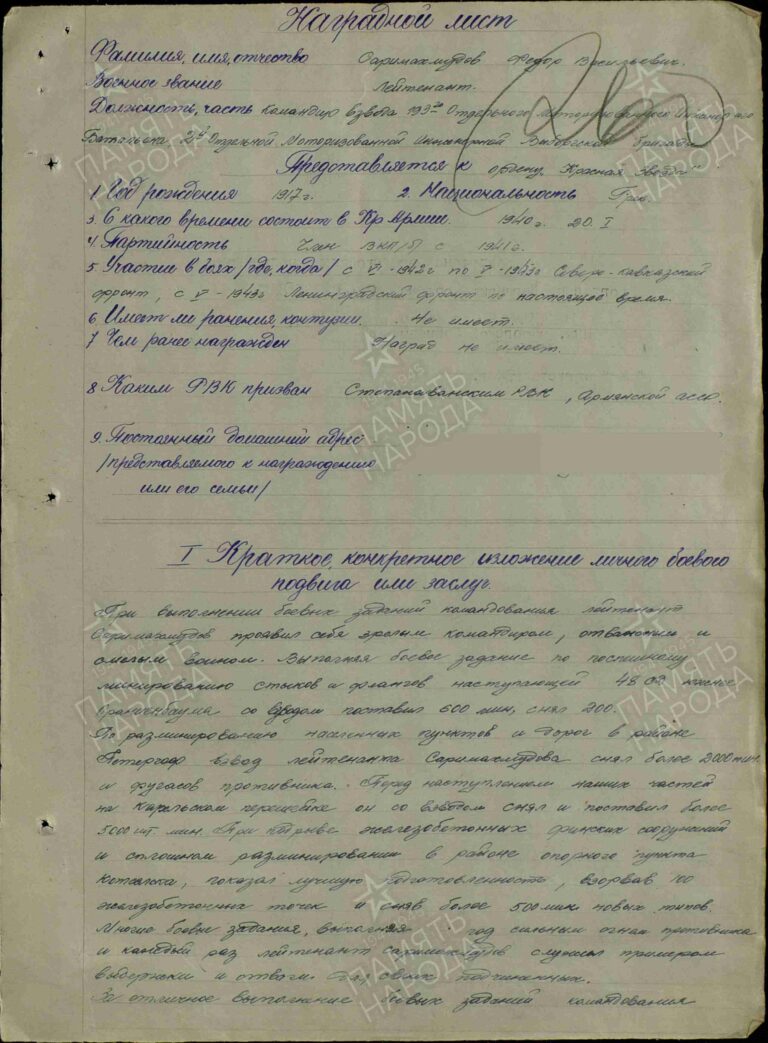 Наградной лист
Фамилия, имя, отчество Саримахмудов Федор Васильевич.
Военное звание Лейтенант.
Должность, часть Командир взвода 193го Отдельного Моторизованного Инженерного
Батальона 2й Отдельной Моторизованной Инженерной Выборгской бригады
Представляется к ордену "Красная Звезда"
1. Год рождения 1917 г. 2. Национальность Грек.
3. С какого времени состоит в Кр Армии. 1940 г. 20. I
4. Партийность Член ВКП/б/ с 1941 г.
5. Участие в боях /где, когда/ с VI - 1942 г по V - 1943 г Северо-Кавказский
фронт, с V - 1943 г Ленинградский фронт по настоящее время.
6. Имеет ли ранения, контузии. Не имеет.
7. Чем ранее награжден Наград не имеет.
8. Каким РВК призван Степанаванским РВК, Армянской асср.
9. Постоянный домашний адрес
/представляемого к награждению
или его семьи/
I Краткое, конкретное изложение личного боевого
подвига или заслуг.
При выполнении боевых заданий командования лейтенант
Саримахмудов проявил себя зрелым командиром, отважным и
смелым воином. Выполняя боевое задание по поспешному
минированию стыков и флангов наступающей 48 СД южнее
Ораниенбаума со взводом поставил 600 мин, снял 200.
По разминированию населенных пунктов и дорог в районе
Петергофа взвод лейтенанта Саримахмудова снял более 2000 мин
и фугасов противника. Перед наступлением наших частей
на Карельском перешейке он со взводом снял и поставил более
5000 шт мин. При подрыве железобетонных финских сооружений
и сплошном разминировании в районе опорного пункта
показал лучшую подготовленность, взорвав 100
железобетонных точек и сняв более 500 мин новых типов.
Многие боевые задания, выполняя под сильным огнем противника
и каждый раз лейтенант Саримахмудов служил примером
выдержки и отваги для своих подчиненных.
За отличное выполнение боевых заданий командования
ПАМЯТЬ
НАРОДА